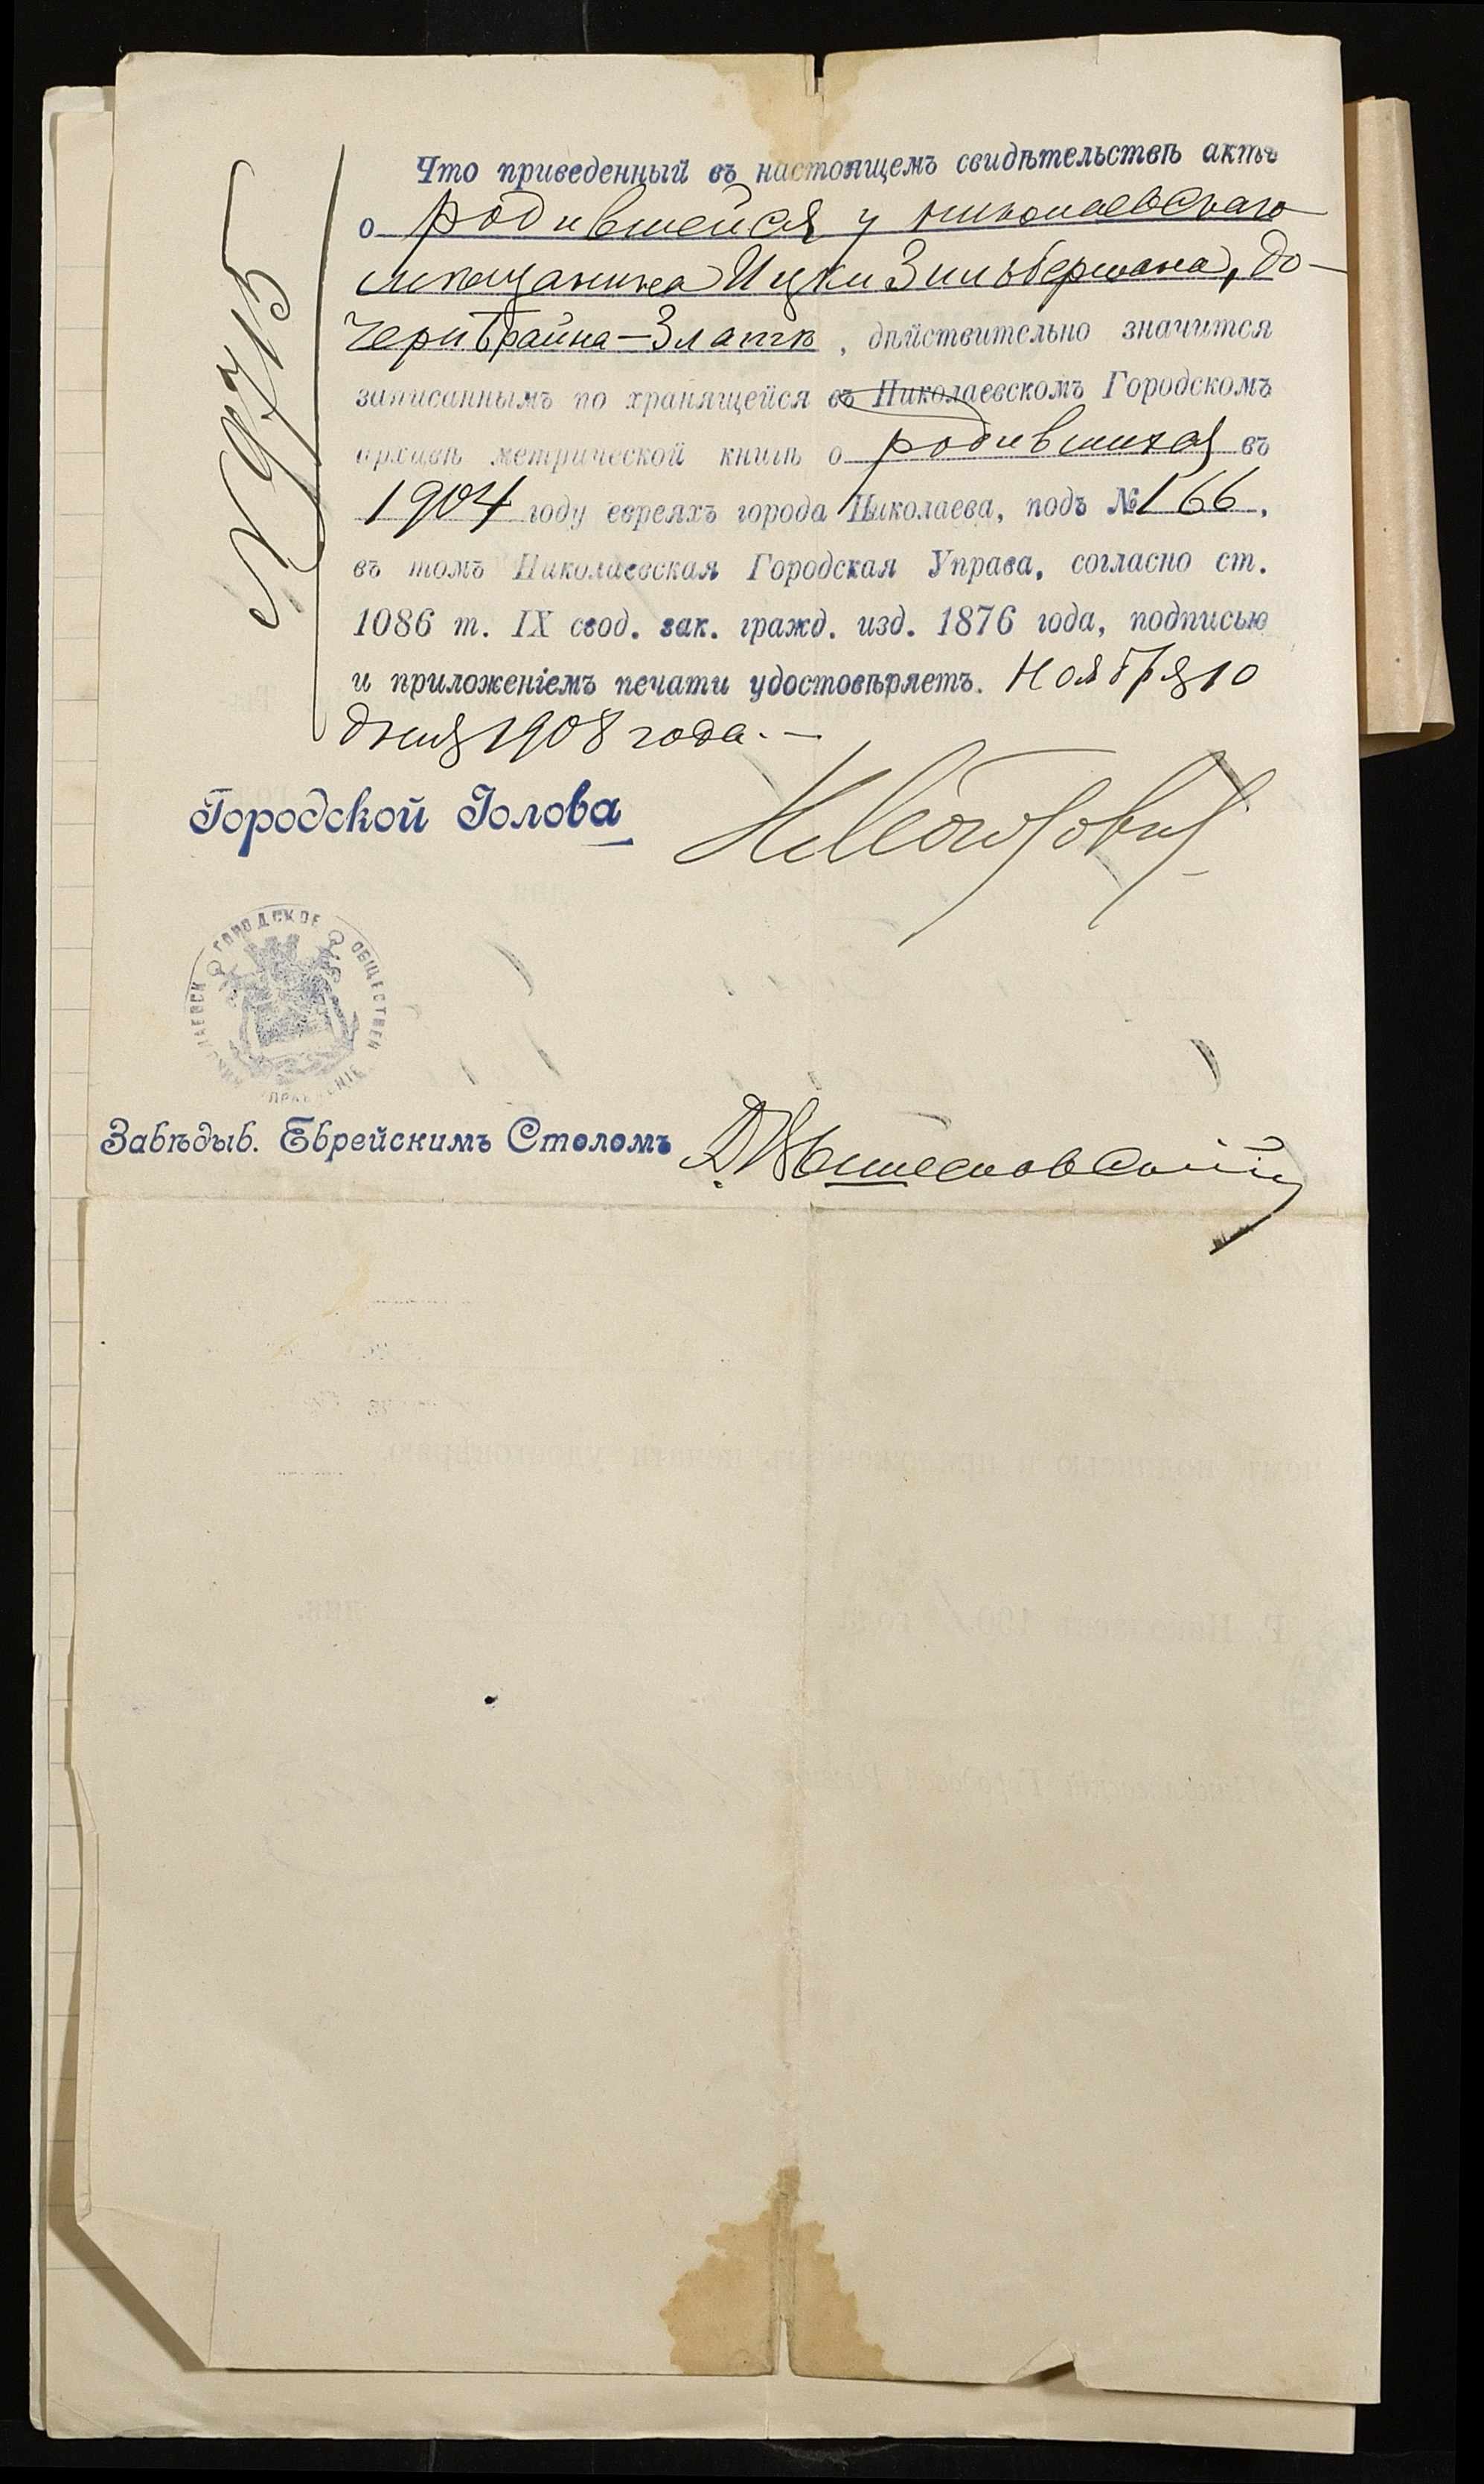 № 9715
Что приведенный въ настоящемъ свидѣтельствѣ актъ
о родившейся у николаевскаго
мѣщанина Ицки Зильбермана, до-
чери Брайна-Златѣ, дѣйствительно значится
записаннымъ по хранящейся въ Николаевскомъ Городскомъ
архивѣ метрической книгѣ о родившихся въ
1904 году евреяхъ города Николаева, подъ № 166,
въ томъ Николаевская Городская Управа, согласно ст.
1086 т. IX свод. зак. гражд. изд. 1876 года, подписью
и приложеніемъ печати удостовѣряетъ. Ноября 10
дня 1908 года.—
Городской Голова
НИКОЛАЕВСК ГОРОДСКОЕ ОБЩЕСТВЕН УПРАВЛЕНІЕ
Завѣдыв. Еврейскимъ Столомъ